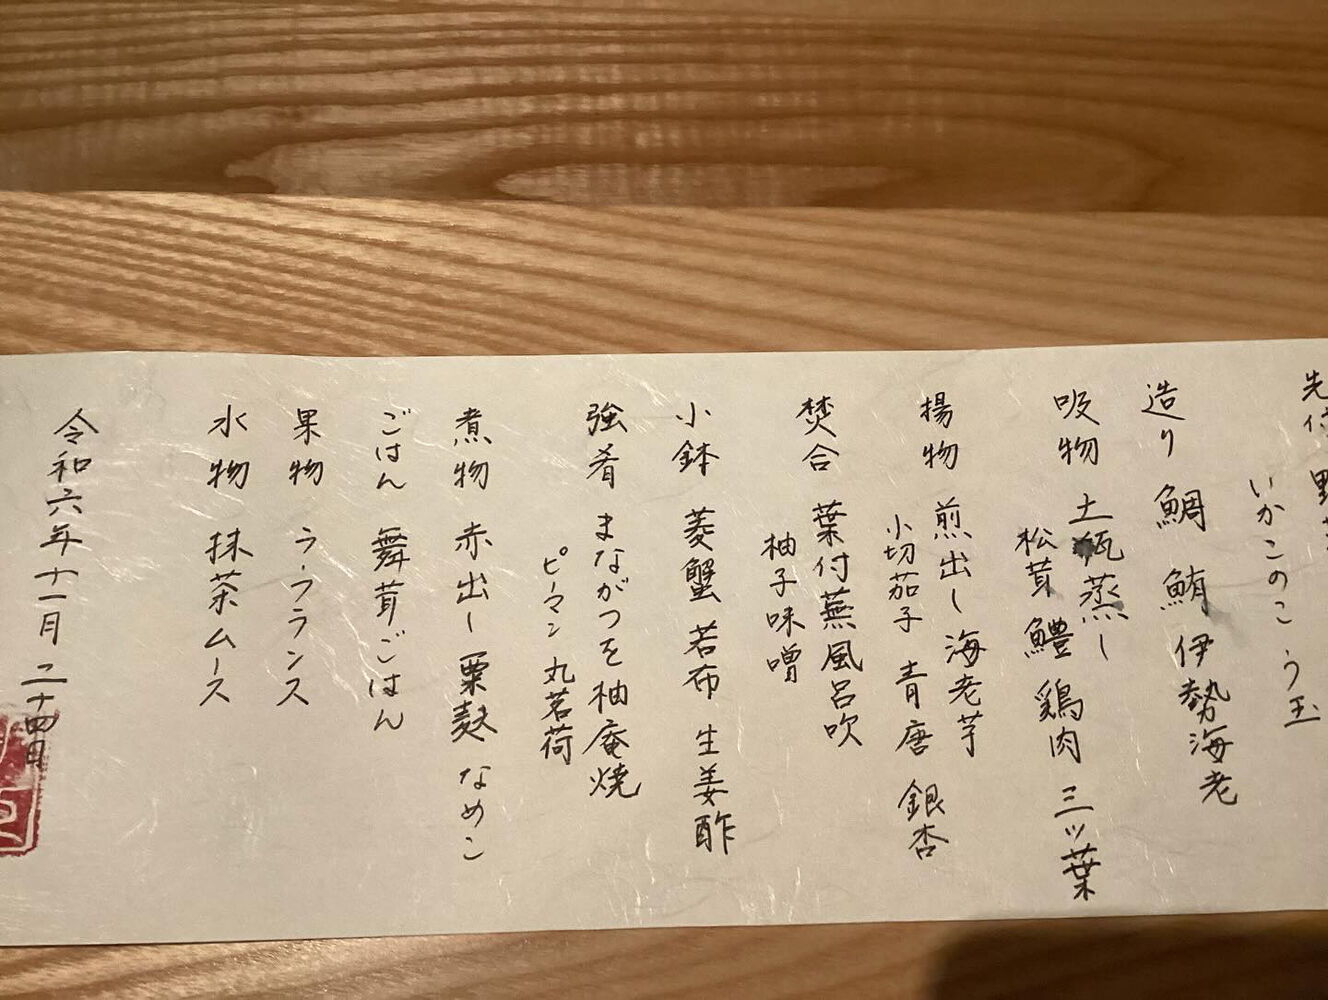 先付
いかこのこ う玉
造り 鯛 鮪 伊勢海老
吸物 土瓶蒸し
松茸 鱧 鶏肉 三ツ葉
揚物 煎出し 海老芋
小切茄子 青唐 銀杏
焚合 葉付蕪風呂吹
柚子味噌
小鉢 菱蟹 若布 生姜酢
強肴 まながつを柚庵焼
ピーマン 丸茗荷
煮物 赤出し 粟麩 なめこ
ごはん 舞茸ごはん
果物 ラ・フランス
水物 抹茶ムース
令和六年十一月二十四日